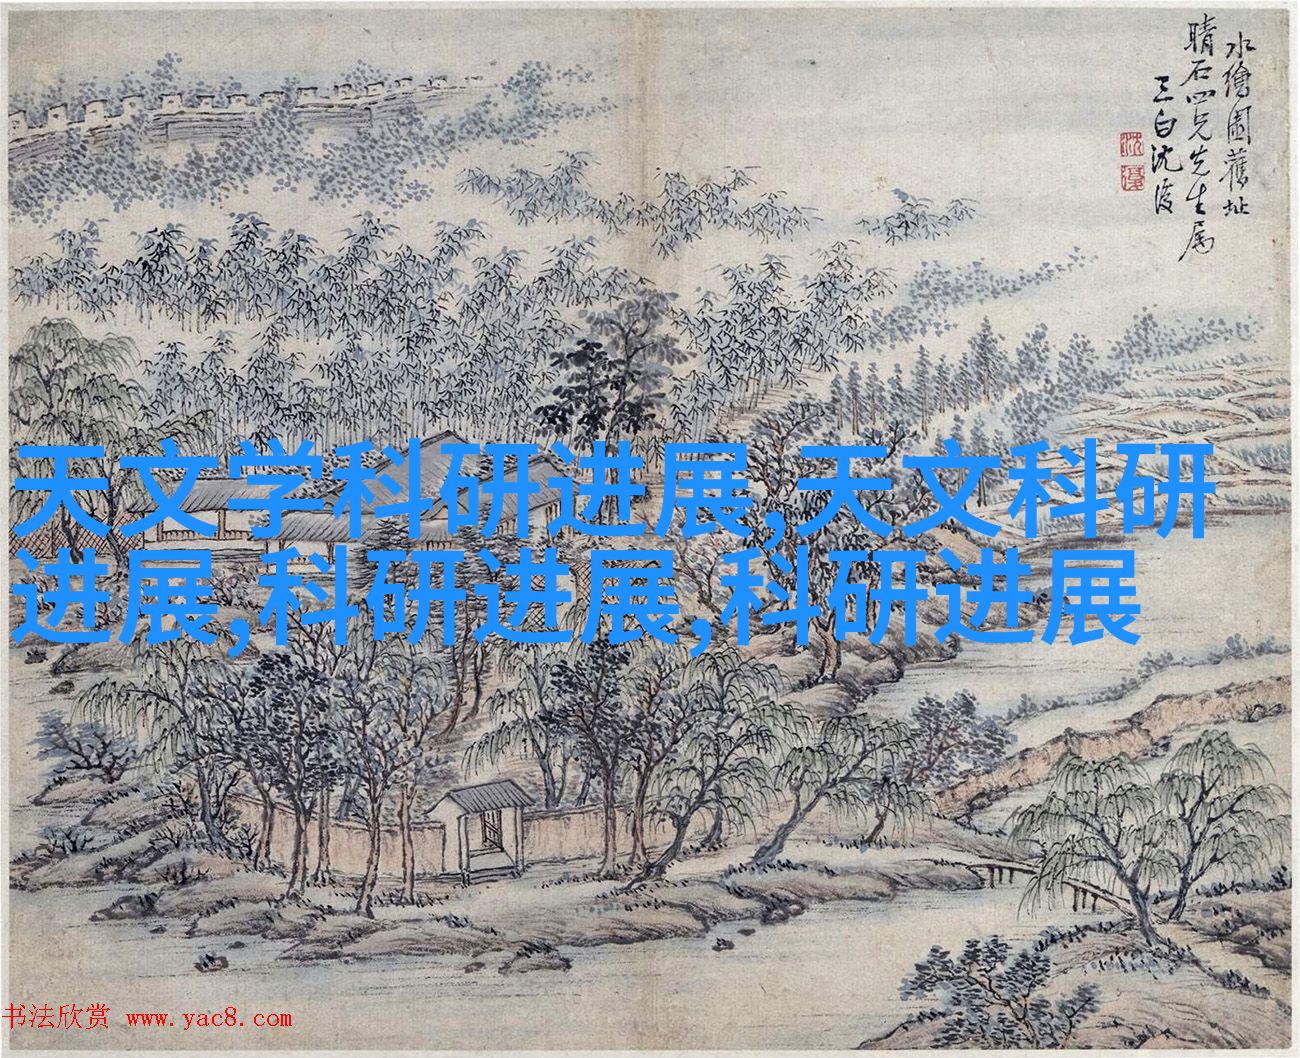 水繪園舊址
晴石四兄先生属
三白沈复
天文学科研进展,天文科研
进展,科研进展,科研进展
书法欣赏 www.yac8.com